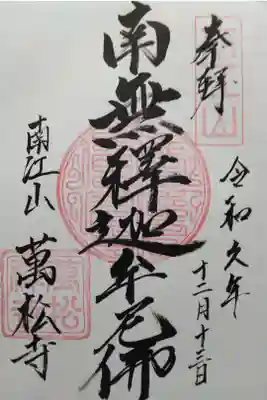 奉拝
令和元年
十二月十三日
南無釋迦牟尼佛
南江山
萬松寺